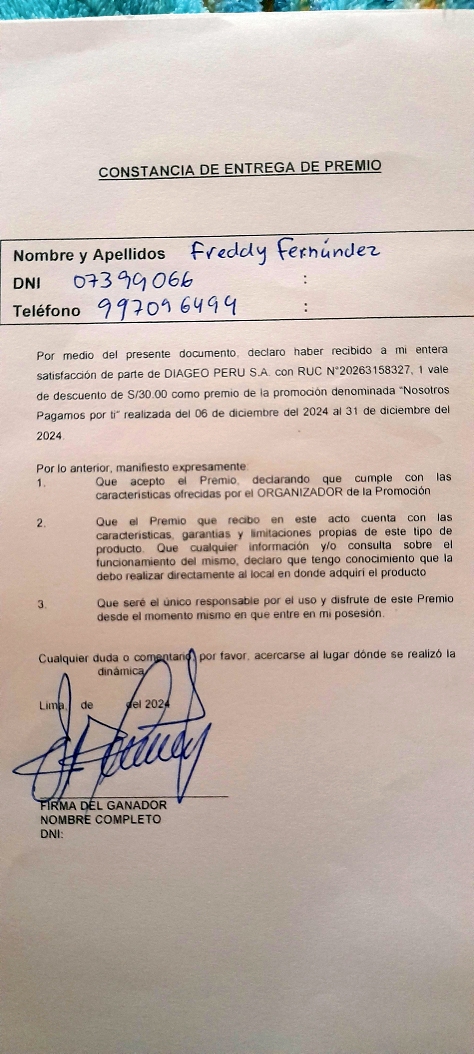 CONSTANCIA DE ENTREGA DE PREMIO
Nombre y Apellidos Freddy Fernández
DNI 07399066 :
Teléfono 997096494 :
Por medio del presente documento, declaro haber recibido a mi entera
satisfacción de parte de DIAGEO PERU S.A. con RUC N°20263158327, 1 vale
de descuento de S/30.00 como premio de la promoción denominada "Nosotros
Pagamos por ti" realizada del 06 de diciembre del 2024 al 31 de diciembre del
2024.
Por lo anterior, manifiesto expresamente:
1. Que acepto el Premio, declarando que cumple con las
características ofrecidas por el ORGANIZADOR de la Promoción
2. Que el Premio que recibo en este acto cuenta con las
características, garantías y limitaciones propias de este tipo de
producto. Que cualquier información y/o consulta sobre el
funcionamiento del mismo, declaro que tengo conocimiento que la
debo realizar directamente al local en donde adquirí el producto
3. Que seré el único responsable por el uso y disfrute de este Premio
desde el momento mismo en que entre en mi posesión.
Cualquier duda o comentario, por favor, acercarse al lugar dónde se realizó la
dinámica
Lima, de del 2024
FIRMA DEL GANADOR
NOMBRE COMPLETO
DNI: